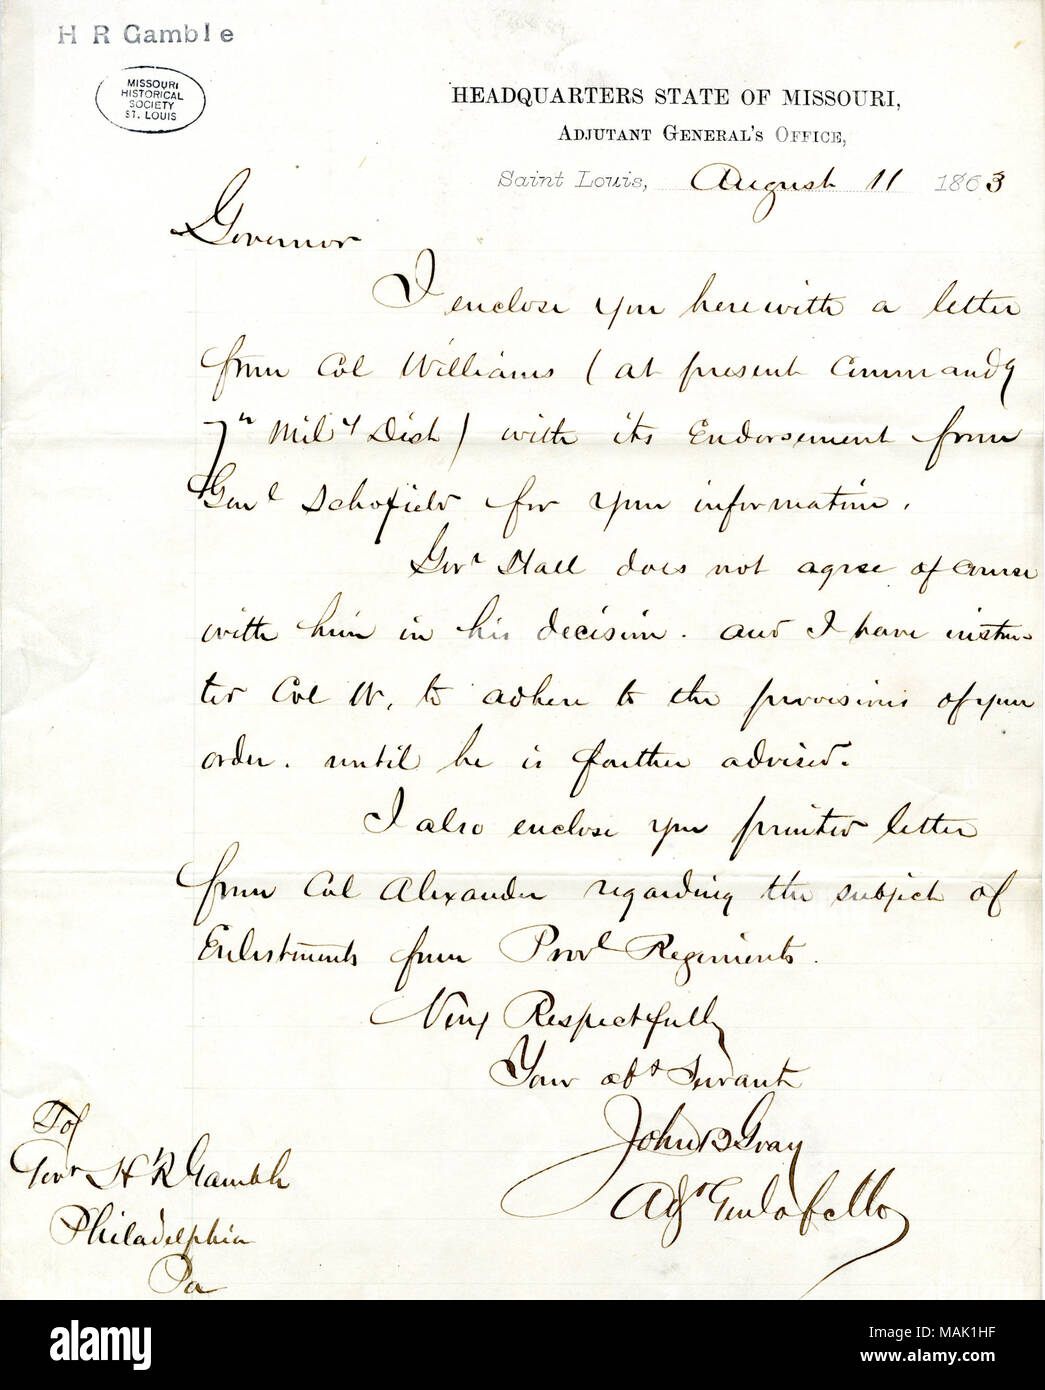 H R Gamble
MISSOURI
HISTORICAL
SOCIETY
ST. LOUIS
HEADQUARTERS STATE OF MISSOURI,
ADJUTANT GENERAL'S OFFICE,
Saint Louis, August 11 1863
Governor
I enclose you herewith a letter
from Col Williams (at present Commandg
7th Mily Dist) with its Endorsement from
Genl Schofield for your information.
Govr Hall does not agree of course
with him in his decision. and I have instruc-
ted Col W. to adhere to the provisions of your
order. until he is further advised.
I also enclose you printed letter
from Col Alexander regarding the subject of
Enlistments from Provl Regiments.
Very Respectfully
Your obt Servant
John B Gray
Adjt Genl of Mo
To
Govr H R Gamble
Philadelphia
Pa
alamy
Image ID: MAK1HF
www.alamy.com